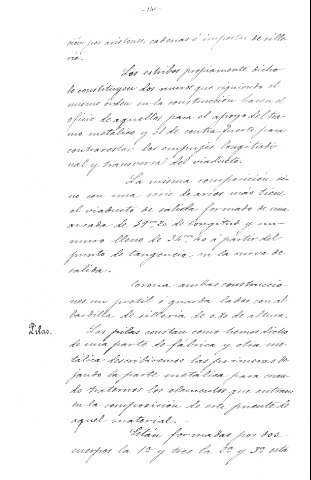 sion por aristones, cadenas é impostas de sille
ria.
Los estribos propiamente dicho
lo constituyen dos muros que siguiendo el
mismo órden en la construccion hacen el
oficio de aquellos para el apoyo del tra
mo metálico y el de contra fuerte para
contrarestar los empujes longitudi
nal y transversal del viaducto.
La misma composicion, si
no con una serie de arcos más tiene
el viaducto de salida formado de una
arcada de 39m20 de longitud y un
muro lleno de 34m40 á partir del
punto de tangencia, en la curva de
salida.
Corona ambas construccio
nes un pretil ó guarda lados con al
bardilla de silleria de 0,20 de altura.
Pilas.
Las pilas constan como hemos dicho
de una parte de fábrica y otra me
tálica describiremos las primeras de
jando la parte metálica para cuan
do tratemos los elementos que entran
en la composicion de este puente de
aquel material.
Están formadas por dos
cuerpos la 1ª y tres la 2ª y 3ª esta